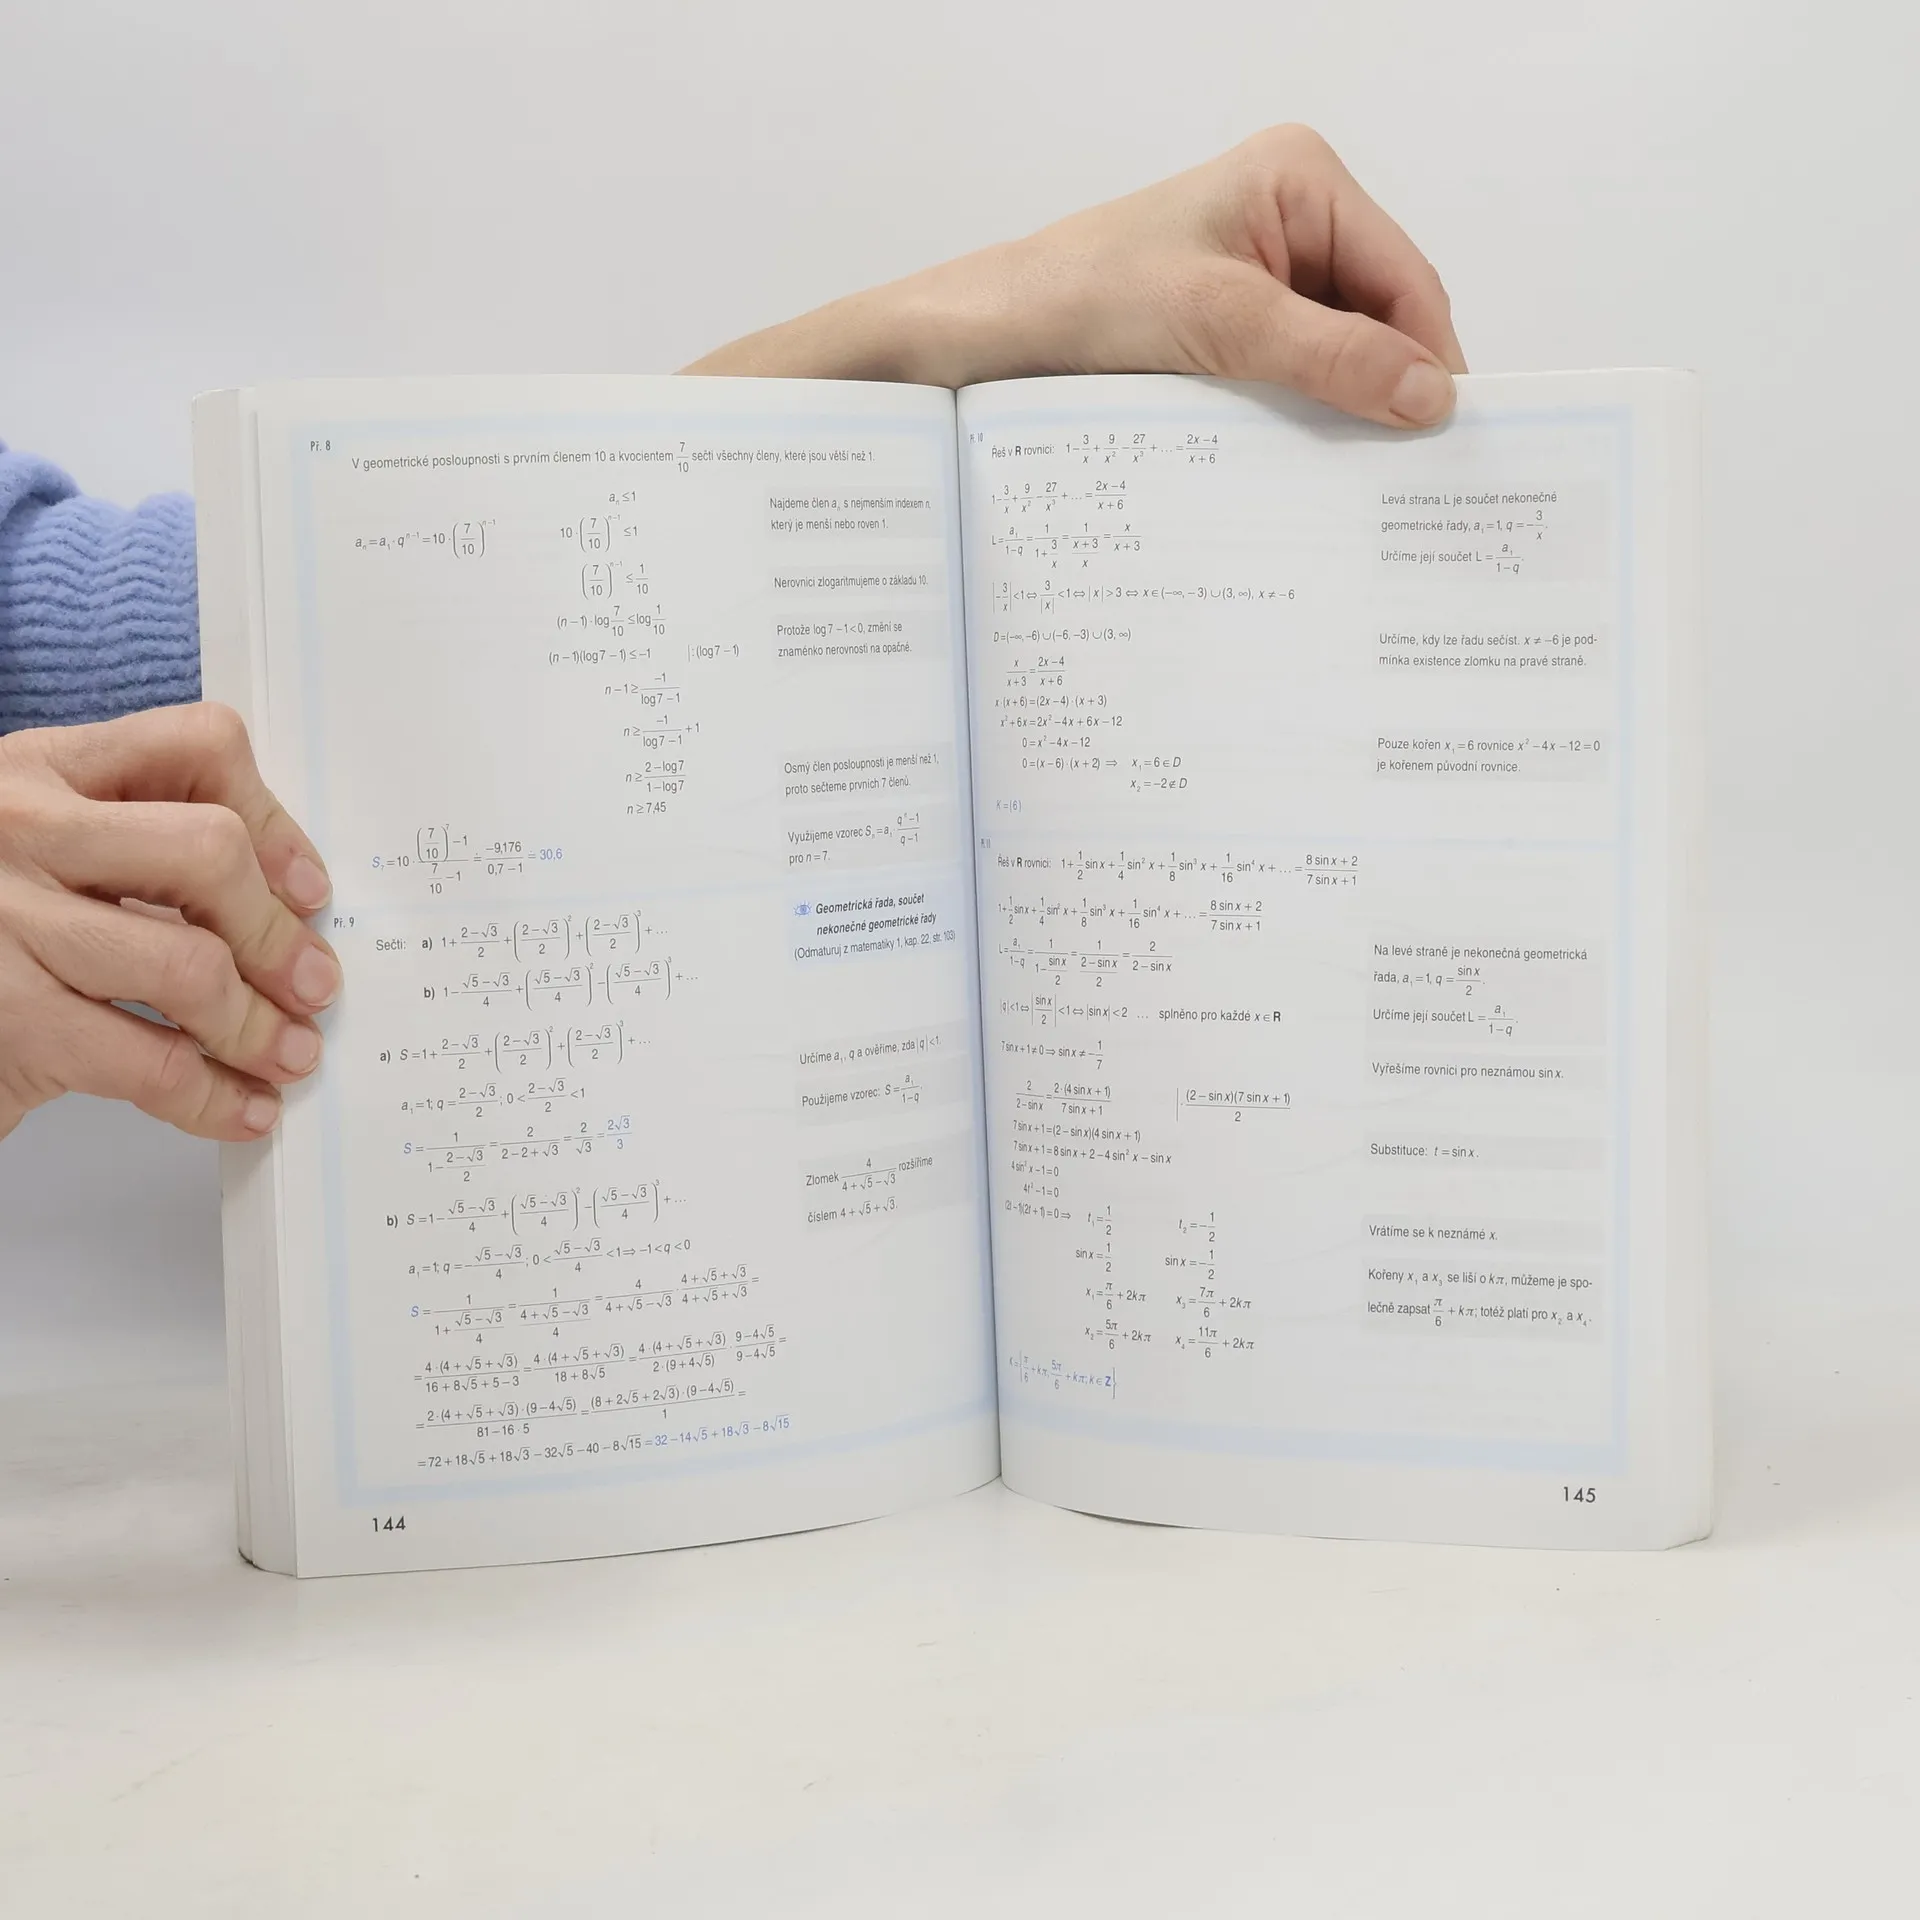 Př. 8
V geometrické posloupnosti s prvním členem 10 a kvocientem 7/10 sečti všechny členy, které jsou větší než 1.
aₙ ≤ 1
Najdeme člen aₙ s nejmenším indexem n,
který je menší nebo roven 1.
aₙ = a₁ · qⁿ⁻¹ = 10 · (7/10)ⁿ⁻¹
10 · (7/10)ⁿ⁻¹ ≤ 1
(7/10)ⁿ⁻¹ ≤ 1/10
Nerovnici zlogaritmujeme o základu 10.
(n – 1) · log 7/10 ≤ log 1/10
Protože log 7 – 1 < 0, změní se
znaménko nerovnosti na opačné.
(n – 1)(log 7 – 1) ≤ –1 | : (log 7 – 1)
n – 1 ≥ –1/(log 7 – 1)
n ≥ –1/(log 7 – 1) + 1
n ≥ (2 – log 7)/(1 – log 7)
Osmý člen posloupnosti je menší než 1,
proto sečteme prvních 7 členů.
n ≥ 7,45
Využijeme vzorec Sₙ = a₁ · (qⁿ – 1)/(q – 1)
pro n = 7.
S₇ = 10 · ((7/10)⁷ – 1)/(7/10 – 1) ≐ –9,176/(0,7 – 1) = 30,6
Př. 9
Sečti: a) 1 + (2 – √3)/2 + ((2 – √3)/2)² + ((2 – √3)/2)³ + ...
b) 1 – (√5 – √3)/4 + ((√5 – √3)/4)² – ((√5 – √3)/4)³ + ...
Geometrická řada, součet
nekonečné geometrické řady
(Odmaturuj z matematiky 1, kap. 22, str. 103)
a) S = 1 + (2 – √3)/2 + ((2 – √3)/2)² + ((2 – √3)/2)³ + ...
Určíme a₁, q a ověříme, zda |q| < 1.
a₁ = 1; q = (2 – √3)/2; 0 < (2 – √3)/2 < 1
Použijeme vzorec: S = a₁/(1 – q).
S = 1/(1 – (2 – √3)/2) = 2/(2 – 2 + √3) = 2/√3 = 2√3/3
b) S = 1 – (√5 – √3)/4 + ((√5 – √3)/4)² – ((√5 – √3)/4)³ + ...
Zlomek 4/(4 + √5 – √3) rozšíříme
číslem 4 + √5 + √3.
a₁ = 1; q = –(√5 – √3)/4; 0 < (√5 – √3)/4 < 1 ⇒ –1 < q < 0
S = 1/(1 + (√5 – √3)/4) = 1/((4 + √5 – √3)/4) = 4/(4 + √5 – √3) · (4 + √5 + √3)/(4 + √5 + √3) =
= 4 · (4 + √5 + √3)/(16 + 8√5 + 5 – 3) = 4 · (4 + √5 + √3)/(18 + 8√5) = 4 · (4 + √5 + √3)/(2 · (9 + 4√5)) · (9 – 4√5)/(9 – 4√5) =
= 2 · (4 + √5 + √3) · (9 – 4√5)/(81 – 16 · 5) = (8 + 2√5 + 2√3) · (9 – 4√5)/1 =
= 72 + 18√5 + 18√3 – 32√5 – 40 – 8√15 = 32 – 14√5 + 18√3 – 8√15
144
Př. 10
Řeš v R rovnici: 1 – 3/x + 9/x² – 27/x³ + ... = (2x – 4)/(x + 6)
1 – 3/x + 9/x² – 27/x³ + ... = (2x – 4)/(x + 6)
Levá strana L je součet nekonečné
geometrické řady, a₁ = 1, q = –3/x.
Určíme její součet L = a₁/(1 – q).
L = a₁/(1 – q) = 1/(1 + 3/x) = 1/((x + 3)/x) = x/(x + 3)
|–3/x| < 1 ⇔ 3/|x| < 1 ⇔ |x| > 3 ⇔ x ∈ (–∞, –3) ∪ (3, ∞), x ≠ –6
D = (–∞, –6) ∪ (–6, –3) ∪ (3, ∞)
Určíme, kdy lze řadu sečíst. x ≠ –6 je pod-
mínka existence zlomku na pravé straně.
x/(x + 3) = (2x – 4)/(x + 6)
x · (x + 6) = (2x – 4) · (x + 3)
x² + 6x = 2x² – 4x + 6x – 12
0 = x² – 4x – 12
Pouze kořen x₁ = 6 rovnice x² – 4x – 12 = 0
je kořenem původní rovnice.
0 = (x – 6) · (x + 2) ⇒ x₁ = 6 ∈ D
x₂ = –2 ∉ D
K = {6}
Př. 11
Řeš v R rovnici: 1 + 1/2 sin x + 1/4 sin² x + 1/8 sin³ x + 1/16 sin⁴ x + ... = (8 sin x + 2)/(7 sin x + 1)
1 + 1/2 sin x + 1/4 sin² x + 1/8 sin³ x + 1/16 sin⁴ x + ... = (8 sin x + 2)/(7 sin x + 1)
L = a₁/(1 – q) = 1/(1 – sin x/2) = 1/((2 – sin x)/2) = 2/(2 – sin x)
Na levé straně je nekonečná geometrická
řada, a₁ = 1, q = sin x/2.
Určíme její součet L = a₁/(1 – q).
|q| < 1 ⇔ |sin x/2| < 1 ⇔ |sin x| < 2 ... splněno pro každé x ∈ R
7 sin x + 1 ≠ 0 ⇒ sin x ≠ –1/7
Vyřešíme rovnici pro neznámou sin x.
2/(2 – sin x) = 2 · (4 sin x + 1)/(7 sin x + 1) | · (2 – sin x)(7 sin x + 1)/2
7 sin x + 1 = (2 – sin x)(4 sin x + 1)
7 sin x + 1 = 8 sin x + 2 – 4 sin² x – sin x
4 sin² x – 1 = 0
Substituce: t = sin x.
4t² – 1 = 0
(2t – 1)(2t + 1) = 0 ⇒ t₁ = 1/2 t₂ = –1/2
Vrátíme se k neznámé x.
sin x = 1/2 sin x = –1/2
Kořeny x₁ a x₃ se liší o kπ, můžeme je spo-
lečně zapsat π/6 + kπ; totéž platí pro x₂ a x₄.
x₁ = π/6 + 2kπ x₃ = 7π/6 + 2kπ
x₂ = 5π/6 + 2kπ x₄ = 11π/6 + 2kπ
K = {π/6 + kπ, 5π/6 + kπ; k ∈ Z}
145